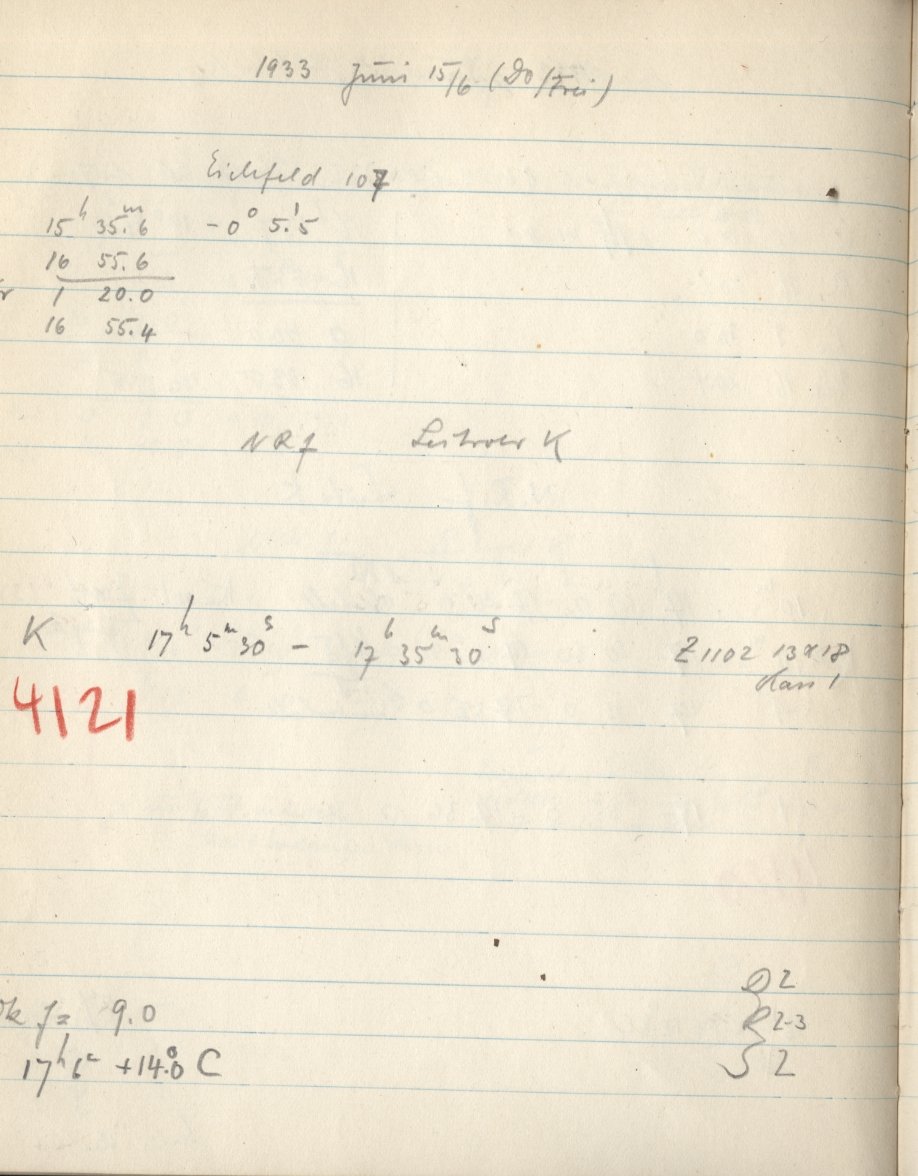 1933 Juni 15/6 (Do/Frei)
Eichfeld 107
15ʰ 35.ᵐ6 -0° 5.'5
16 55.6
1 20.0
16 55.4
NRf K
K 17ʰ 5ᵐ30ˢ - 17ʰ 35ᵐ30ˢ
Z1102 13x18
Klar 1
4121
D 2
f = 9.0
R 2-3
17ʰ 6ᵐ +14.°0 C
S 2